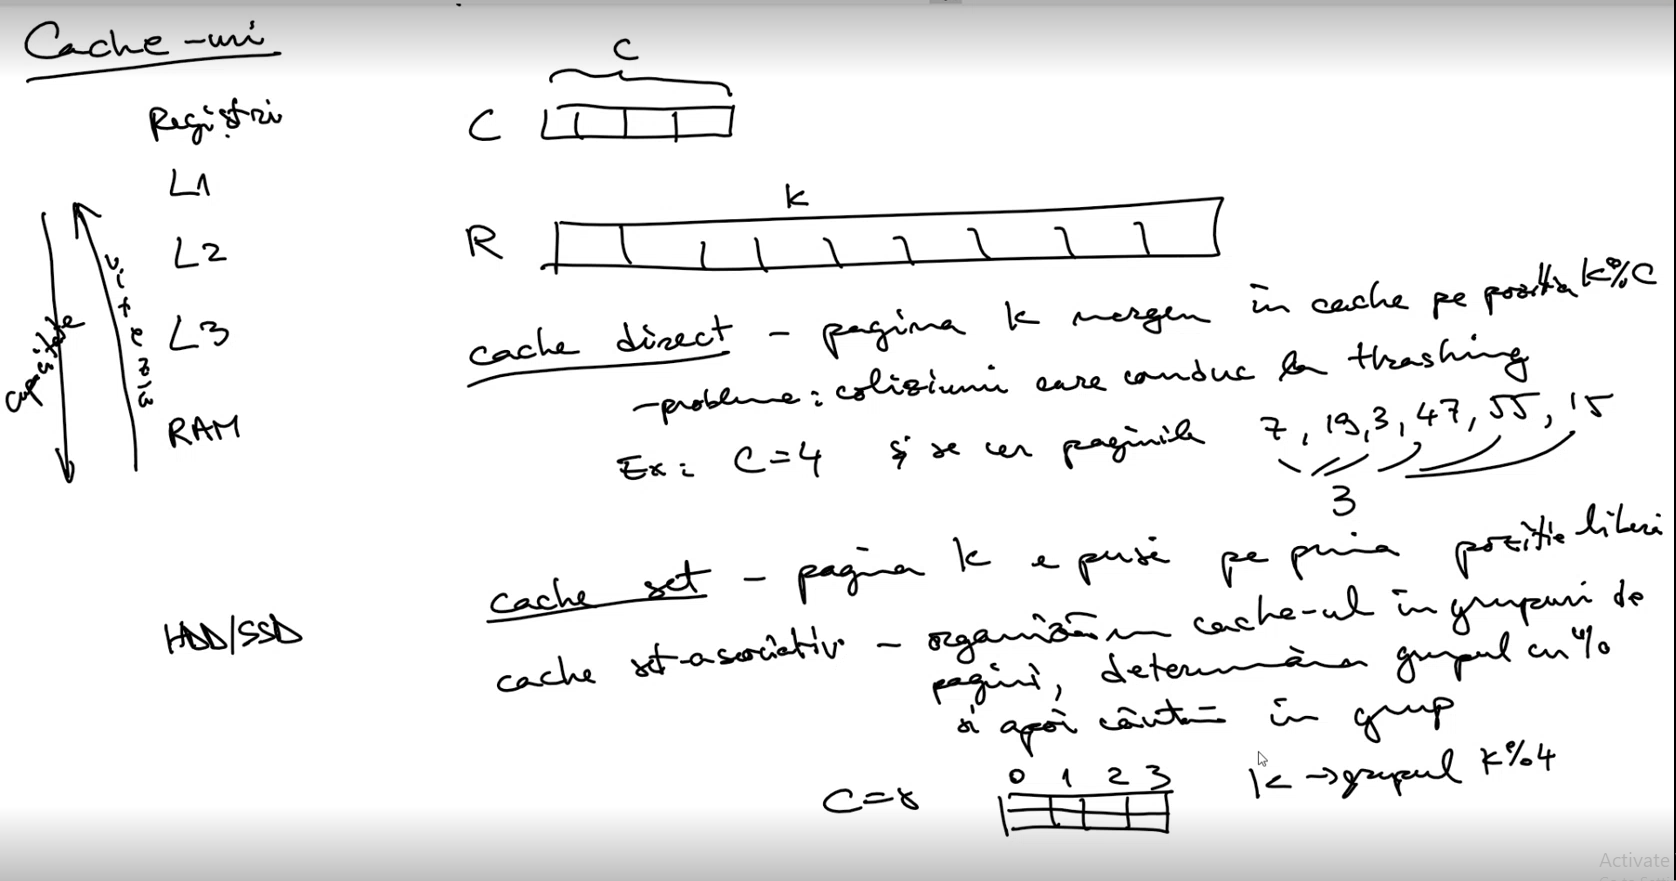 Cache-uri
Regiștri
L1
L2
L3
RAM
HDD/SSD
capacitate
viteză
C
C
k
R
cache direct - pagina k mergem în cache pe poziția k%C
- probleme: coliziuni care conduc la thrashing
Ex: C=4 și se cer paginile 7, 19, 3, 47, 55, 15
3
cache set - pagina k e pusă pe prima poziție liberă
cache set-asociativ - organizăm cache-ul în grupuri de
pagini, determinăm grupul cu %
și apoi căutăm în grup
0 1 2 3
C=8
k → grupul k%4
Activate